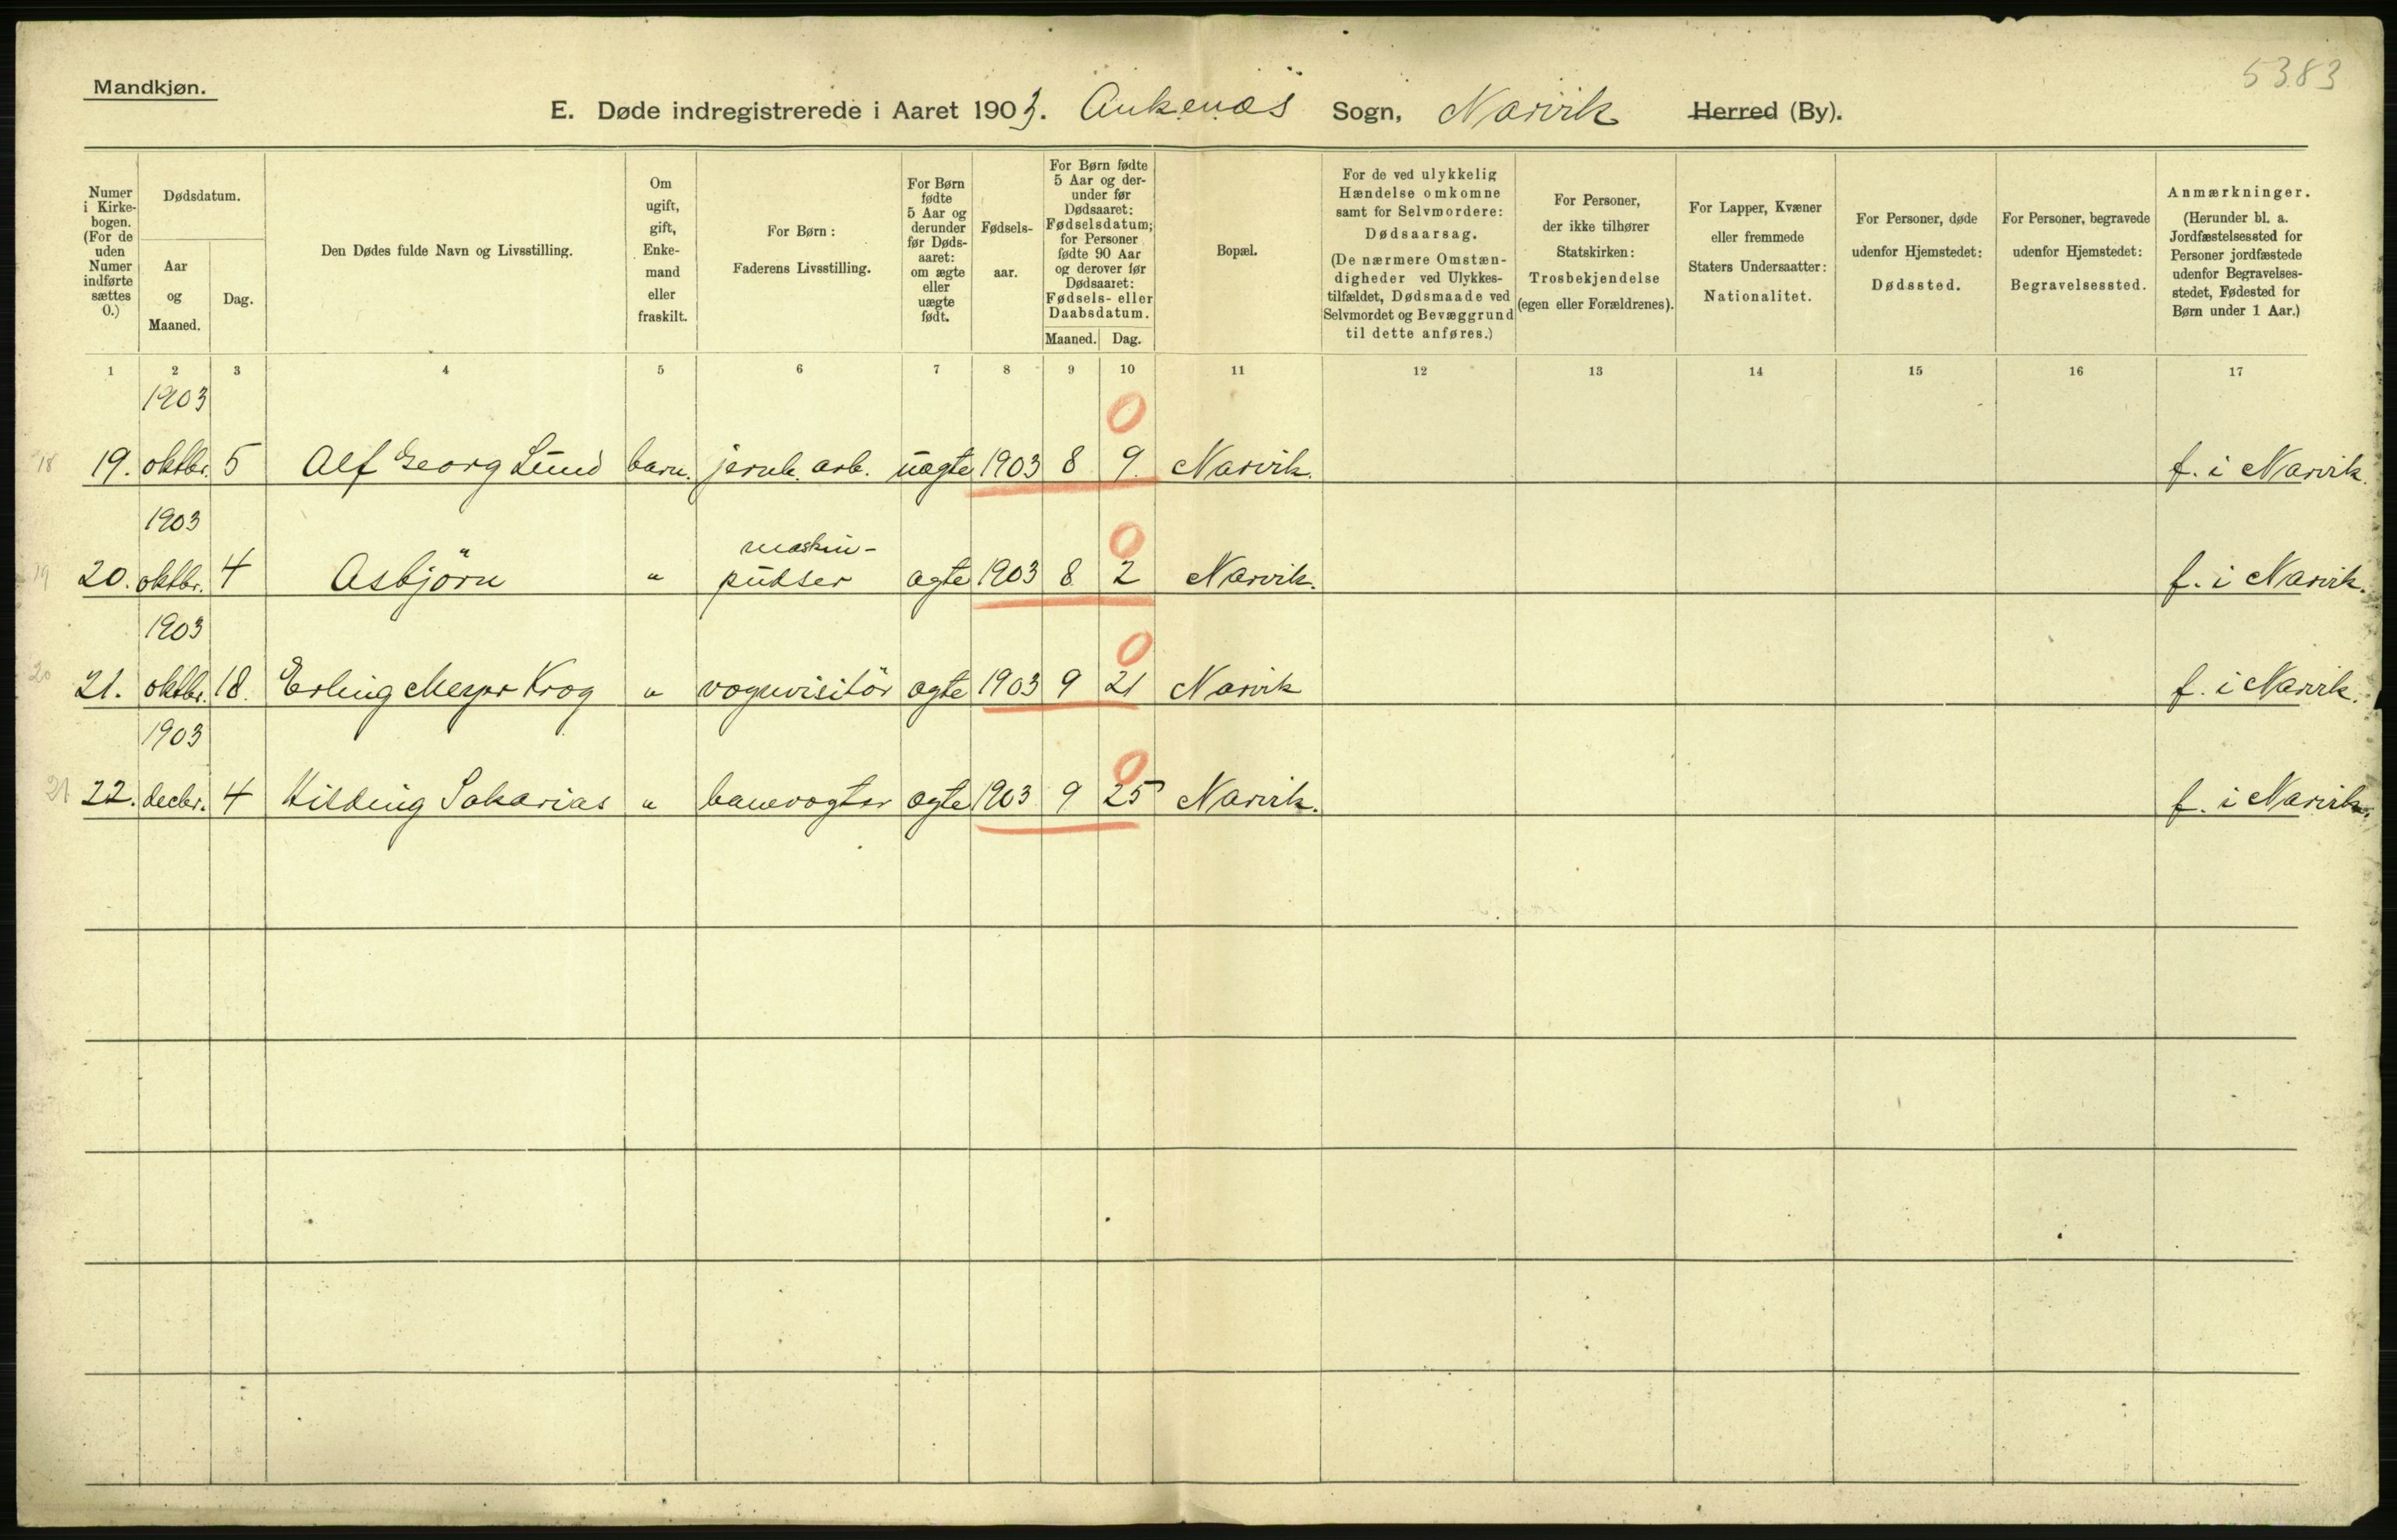 5383
Mandkjøn.
E. Døde indregistrerede i Aaret 1903. Ankenæs Sogn, Narvik Herred (By).
Numer i Kirkebogen. (For de uden Numer indførte sættes 0.)
Dødsdatum.
Aar og Maaned.
Dag.
Den Dødes fulde Navn og Livsstilling.
Om ugift, gift, Enkemand eller fraskilt.
For Børn: Faderens Livsstilling.
For Børn fødte 5 Aar og derunder før Dødsaaret: om ægte eller uægte født.
Fødselsaar.
For Børn fødte 5 Aar og derunder før Dødsaaret: Fødselsdatum; for Personer fødte 90 Aar og derover før Dødsaaret: Fødsels- eller Daabsdatum.
Maaned. Dag.
Bopæl.
For de ved ulykkelig Hændelse omkomne samt for Selvmordere: Dødsaarsag. (De nærmere Omstændigheder ved Ulykkestilfældet, Dødsmaade ved Selvmordet og Bevæggrund til dette anføres.)
For Personer, der ikke tilhører Statskirken: Trosbekjendelse (egen eller Forældrenes).
For Lapper, Kvæner eller fremmede Staters Undersaatter: Nationalitet.
For Personer, døde udenfor Hjemstedet: Dødssted.
For Personer, begravede udenfor Hjemstedet: Begravelsessted.
Anmærkninger. (Herunder bl. a. Jordfæstelsessted for Personer jordfæstede udenfor Begravelsesstedet, Fødested for Børn under 1 Aar.)
1 2 3 4 5 6 7 8 9 10 11 12 13 14 15 16 17
1903 0
18 19. oktbr. 5 Alf Georg Lund barn. jernb. arb. uægte 1903 8 9. Narvik. f. i Narvik.
1903 maskin- 0
19 20. oktbr. 4 Asbjörn " pudser ægte 1903 8 2 Narvik. f. i Narvik.
1903 0
20 21. oktbr. 18. Erling Krog " vognvisitör ægte 1903 9 21 Narvik f. i Narvik.
1903 0
21 22. decbr. 4 Hilding Sakarias " banevogter ægte 1903 9 25 Narvik. f. i Narvik.